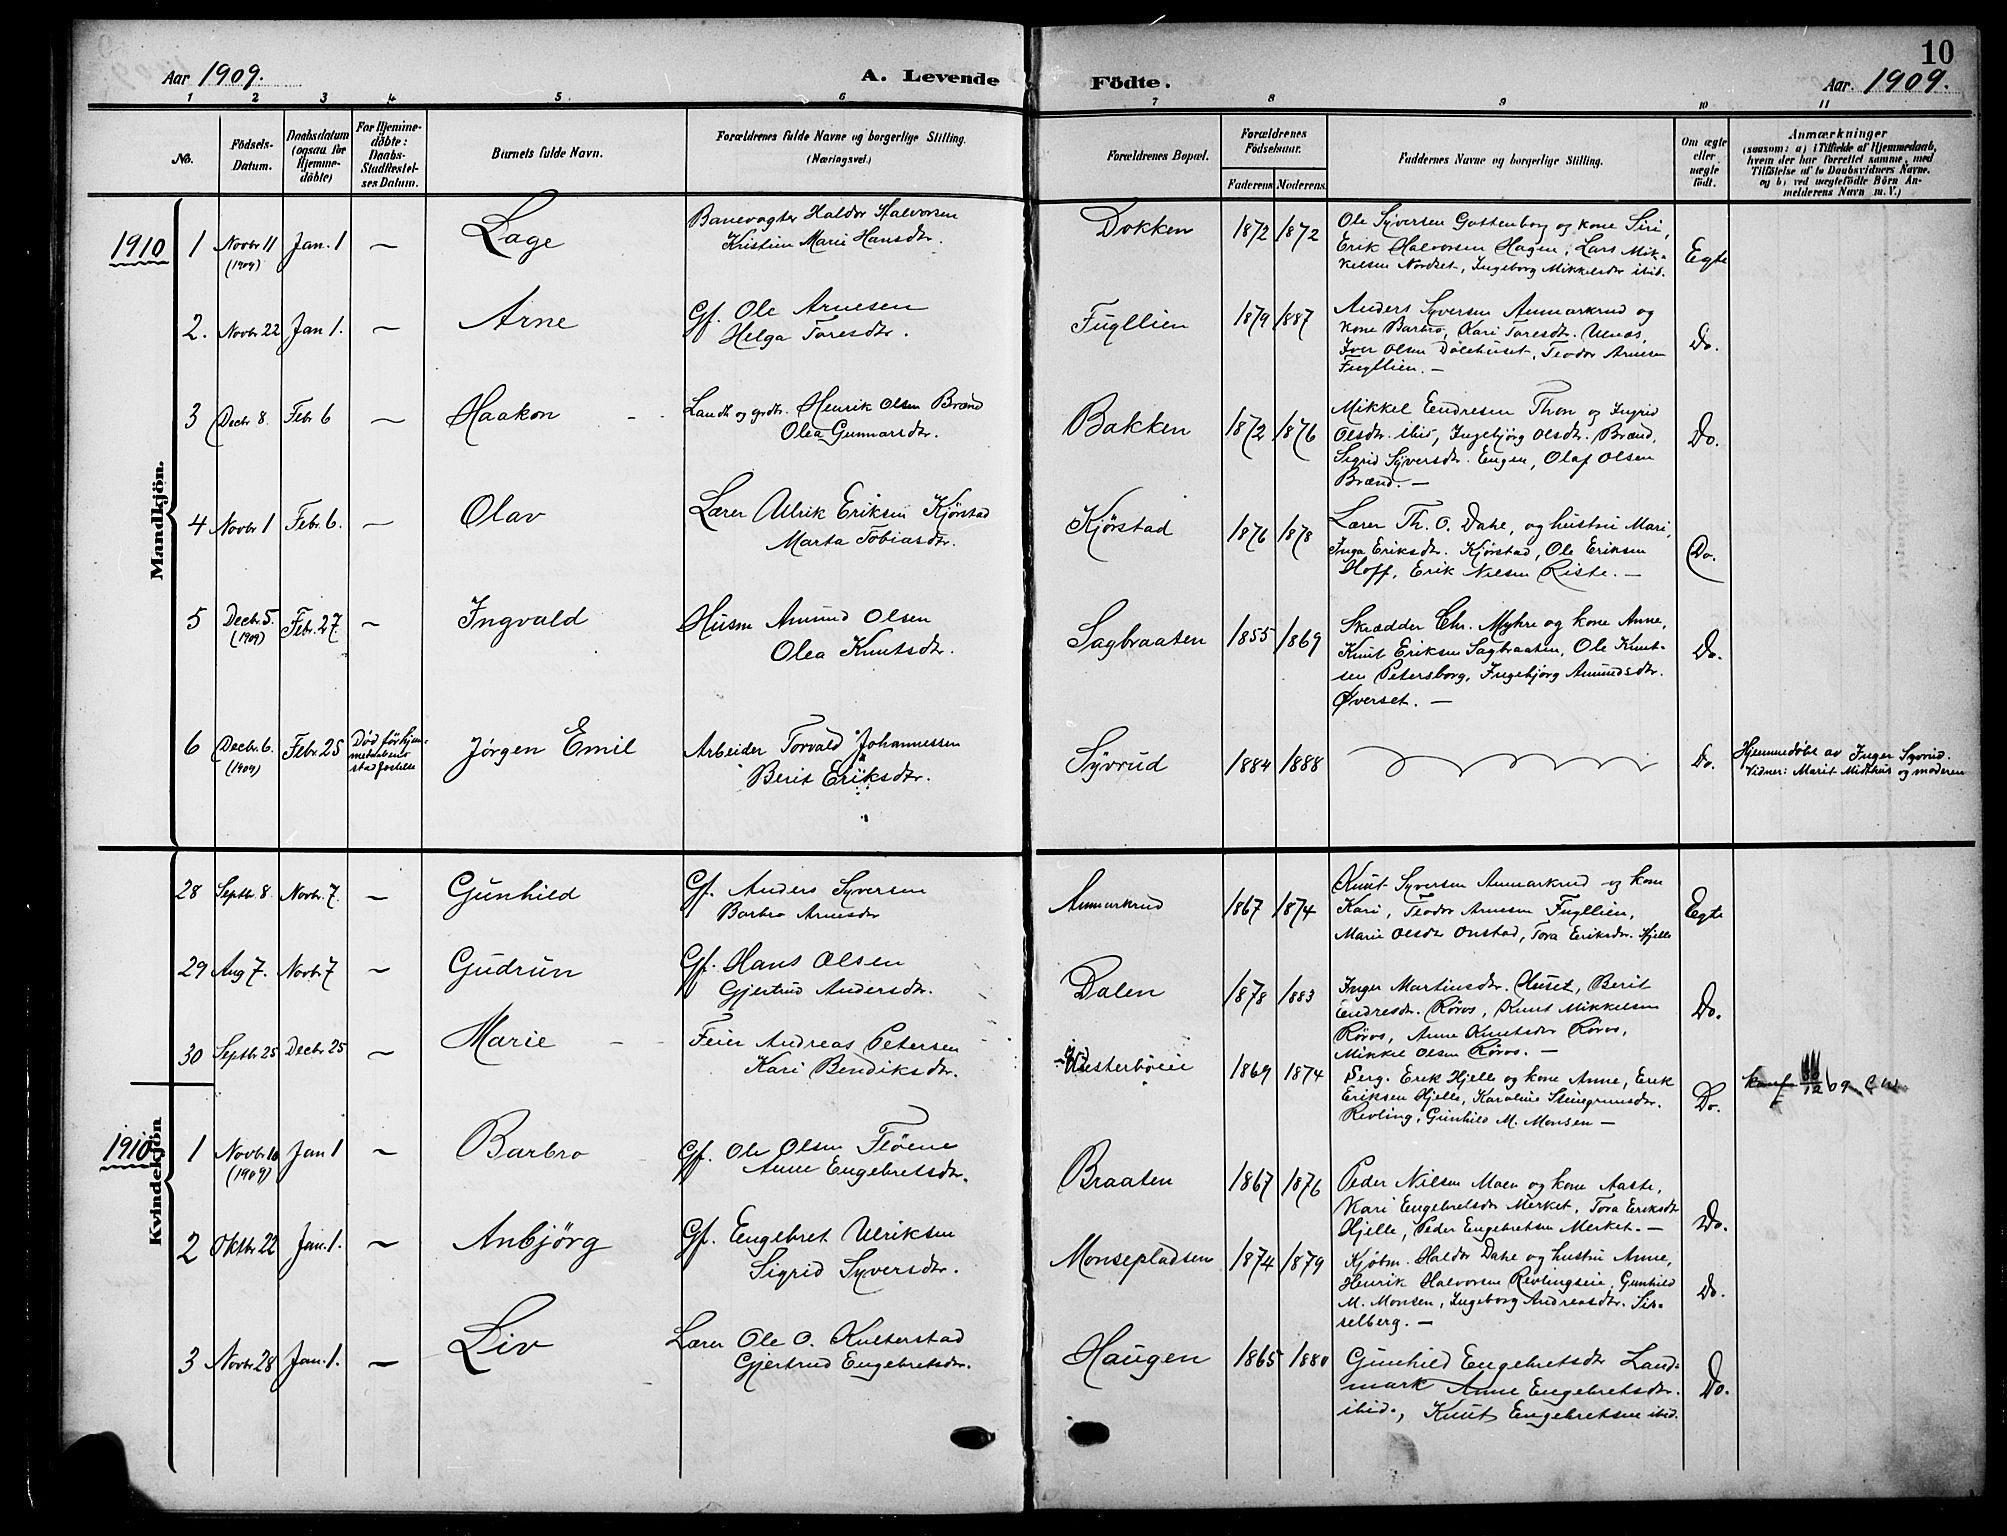 10
Aar 1909.
A. Levende
Födte.
Aar 1909.
1 2 3 4 5 6 7 8 9 10 11
No.
Födsels-
Datum.
Daabsdatum
(ogsaa for
Hjemme-
döbte)
For Hjemme-
döbte:
Daabs-
Stadfæstel-
ses Datum.
Barnets fulde Navn.
Forældrenes fulde Navne og borgerlige Stilling.
(Næringsvei.)
Forældrenes Bopæl.
Forældrenes
Födselsaar.
Faderens Moderens
Faddernes Navne og borgerlige Stilling.
Om ægte
eller
uægte
födt.
Anmærkninger
(saasom: a) i Tilfælde af Hjemmedaab,
hvem der har forrettet samme, med
Tilföielse af to Daabsvidners Navne.
og b) ved uægtefödte Börn An-
melderens Navn m. V.)
Mandkjön.
1910
1 Novbr 11 Jan. 1 — Lage
(1909)
Banevogter Haldor Halvorsen
Kristine Marie Hansdtr.
Dokken 1872 1872
Ole Syversen Guttenborg og kone Siri,
Erik Halvorsen Hagen, Lars Mik-
kelsen Nordset, Ingeborg Mikkelsdtr ibid.
Egte
2. Novbr 22 Jan 1. — Arne
Gf. Ole Arnesen
Helga Toresdtr.
Fugllien 1879 1887
Anders Syversen Anmarkrud og
kone Barbro, Kari Toresdtr. Ulnæs,
Iver Olsen Dölehuset, Teodor Arnesen
Fugllien. —
Do.
3 Decbr 8. Febr 6 — Haakon
Landh og grdr. Henrik Olsen Brænd
Olea Gunnarsdtr.
Bakken 1872 1876
Mikkel Endresen Thon og Ingrid
Olsdtr. ibid, Ingebjörg Olsdtr. Brænd,
Sigrid Syversdtr. Engen, Olaf Olsen
Brænd. —
Do.
4 Novbr 1 Febr. 6. — Olav
Lærer Ulrik Eriksen Kjörstad
Marta Tobiasdtr.
Kjørstad 1876 1878
Lærer Th. O. Dahe, og hustru Mari,
Inga Eriksdtr. Kjørstad, Ole Eriksen
Hoff, Erik Nilsen Riste. —
Do.
5 Decbr. 5. Febr. 27. — Ingvald
(1909)
Husm Amund Olsen
Olea Knutsdtr.
Sagbraaten 1855 1869
Skrædder Chr. Myhre og kone Anne,
Knut Eriksen Sagbraaten, Ole Knut-
sen Petersborg, Ingebjörg Amundsdtr.
Øverset. —
Do.
6 Decbr. 6. Febr. 25 Död för hjem- Jørgen Emil
(1909) medaabens
Arbeider Torvald Johannessen
Berit Eriksdtr.
Syvrud 1884 1888
Do.
Hjemmedöbt av Inger Syvrud.
Vidner: Marit Midthus og moderen
28 Septbr. 8. Novbr. 7. — Gunhild
Gf. Anders Syversen
Barbro Arnesdtr
Anmarkrud 1867 1874
Knut Syversen Anmarkrud og kone
Kari, Teodor Arnesen Fugllien,
Marie Olsdtr Onstad, Tora Eriksdtr. Hjelle
Egte
29 Aug 7. Novbr 7 — Gudrun
Gf. Hans Olsen
Gjertrud Andersdtr.
Dalen 1878 1883
Inger Martinsdtr. Huset, Berit
Endresdtr. Røros, Knut Mikkelsen
Röros, Anne Knutsdtr Röros,
Mikkel Olsen Röros. —
Do.
30 Septbr 25 Decbr 25 — Marie
Feier Andreas Petersen
Kari Bendiksdtr.
1869 1874
Serg. Erik Hjelle og kone Anne, Erik
Eriksen Hjelle, Karoline Steingrimsdtr.
Revling, Gunhild M. Monsen —
Do.
Kvindekjön
1910
1 Novbr 10 Jan 1 — Barbro
(1909)
Gf. Ole Olsen Flöene
Anne Engebretsdtr.
Braaten 1867 1876
Peder Nilsen Moen og kone Aaste,
Kari Engebretsdtr Merket, Tora Eriksdtr
Hjelle, Peder Engebretsen Merket. —
Do.
2 Oktbr 22 Jan. 1. — Anbjörg
Gf. Engebret Ulriksen
Sigrid Syversdtr.
Monsepladsen 1874 1879
Kjøbm. Haldor Dahe og hustru Anne,
Henrik Halvorsen Revlingseie, Gunhild
M. Monsen, Ingeborg Andreasdtr. Sis-
selberg. —
Do.
3 Novbr. 28 Jan. 1. — Liv
Lærer Ole O. Kulterstad
Gjertrud Engebretsdtr.
Haugen 1865 1880
Gunhild Engebretsdtr Land-
mark Anne Engebretsdtr.
ibid., Knut Engebretsen ibid.
Do.